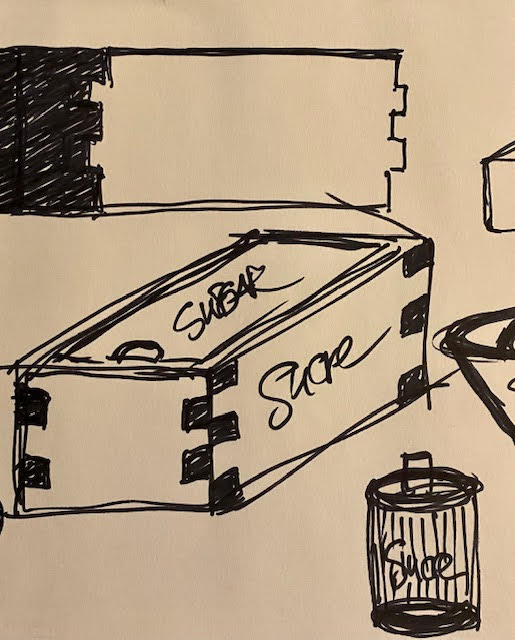 SUGAR
Sucre
Sucre